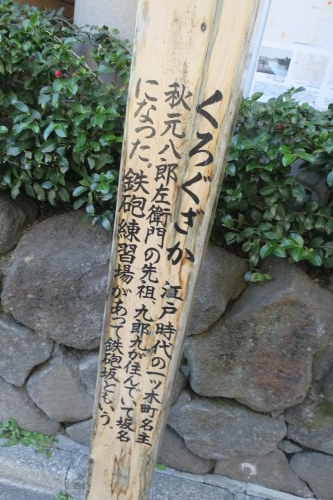 くろぐざか
江戸時代の一ッ木町名主
秋元八郎左衛門の先祖、九郎九が住んでいて坂名
になった。鉄砲練習場があって鉄砲坂ともいう。